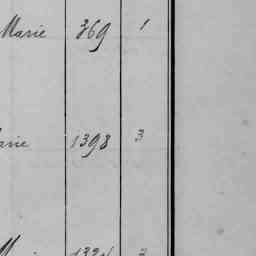 Marie 369 1
arie 1393 3